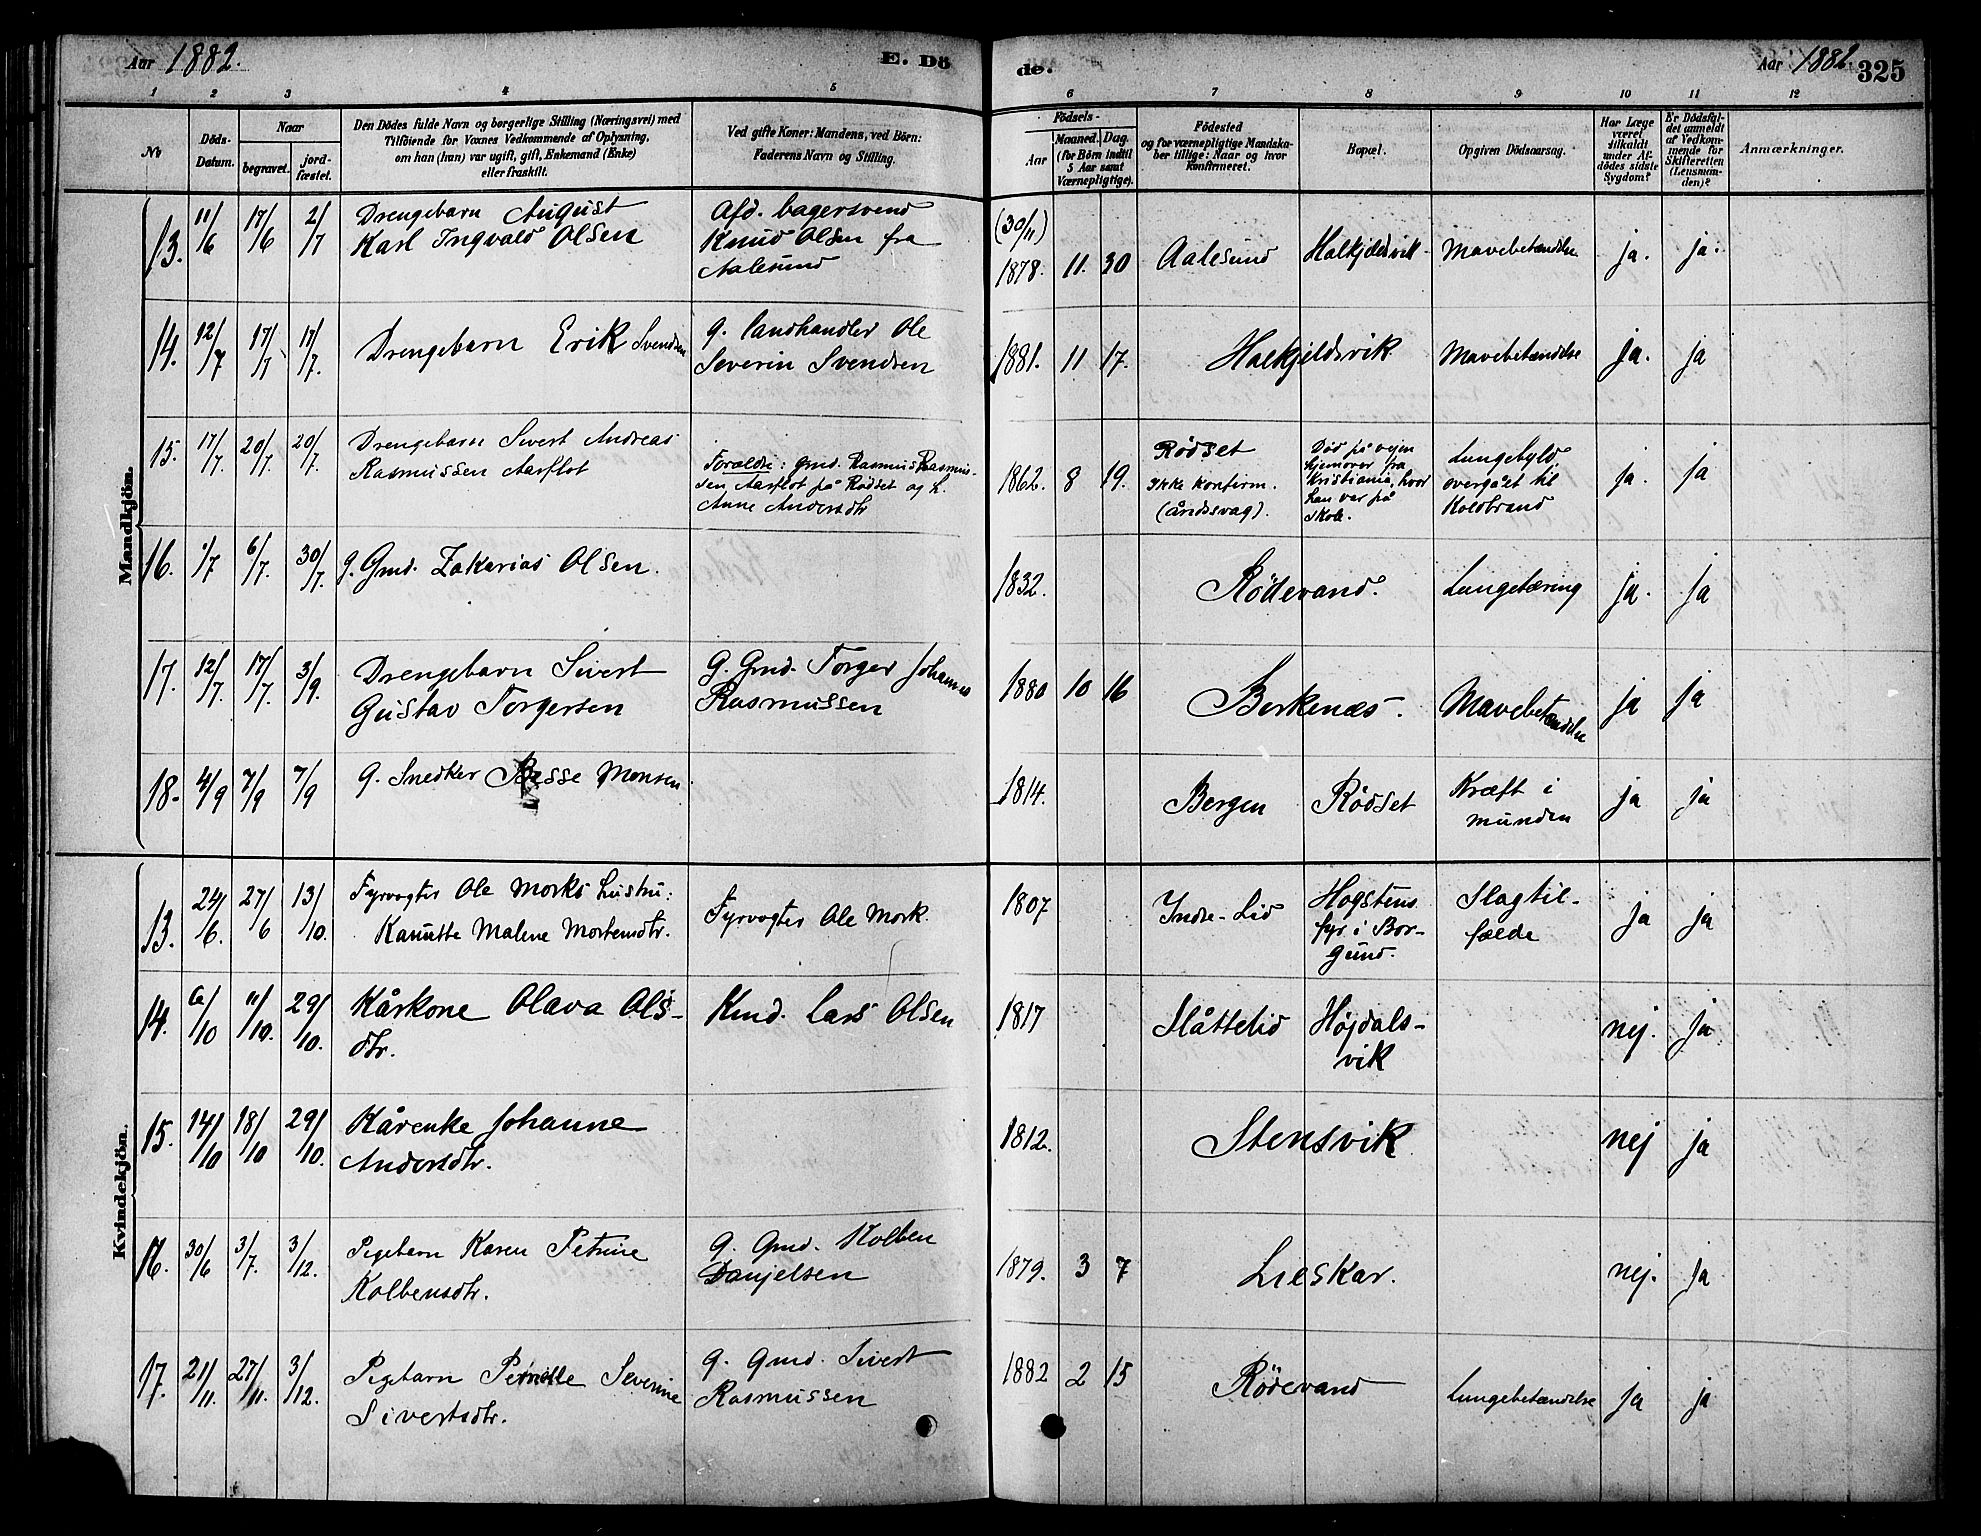 Aar 1882.
E. Dö
de.
Aar 1882.
325
1 2 3 4 5 6 7 8 9 10 11 12
Nr.
Döds-
Datum.
Naar
begravet.
jord-
fæstet.
Den Dödes fulde Navn og borgerlige Stilling (Næringsvei) med
Tilföiende for Voxnes Vedkommende af Oplysning,
om han (hun) var ugift, gift, Enkemand (Enke)
eller fraskilt.
Ved gifte Koner: Mandens, ved Börn:
Faderens Navn og Stilling.
Födsels-
Aar
Maaned.
Dag.
(for Börn indtil
5 Aar samt
Værnepligtige).
Födested
og for værnepligtige Mandska-
ber tillige: Naar og hvor
konfirmeret.
Bopæl.
Opgiven Dödsaarsag.
Har Læge
været
tilkaldt
under Af-
dödes sidste
Sygdom?
Er Dödsfal-
det anmeldt
af Vedkom-
mende for
Skifteretten
(Lensman-
den)?
Anmærkninger.
Mandkjön.
13. 11/6 17/6 2/7
Drengebarn August
Karl Ingvald Olsen
Afd. bagersvend
Knud Olsen fra
Aalesund
(30/11)
1878. 11. 30 Aalesund Halkjeldsvik Mavebetændelse ja. ja.
14. 12/7 17/7 17/7.
Drengebarn Erik Svendsen
g. landhandler Ole
Severin Svendsen
1881. 11 17. Halkjeldsvik Mavebetændelse ja. ja
15. 17/7. 20/7. 20/7.
Drengebarn Sivert Andreas
Rasmussen Aarflot
Forældre: gmd. Rasmus Rasmus-
sen Aarflot på Rödset og h.
Anne Andersdtr
1862. 8 19.
Rödset
Ikke konfirm.
(åndssvag).
Död på vejen
hjemover fra
Kristiania, hvor
han var på
skole.
Lungebyld,
overgået til
Koldbrand
ja. ja
16. 1/7 6/7. 30/7.
g. Gmd. Zakarias Olsen.
1832. Rödevand. Lungetæring ja. ja
17. 12/7. 17/7. 3/9.
Drengebarn Sivert
Gustav Torgersen
G. Gmd. Torger Johannes
Rasmussen
1880 10 16 Berkenæs. Mavebetændelse ja ja
18. 4/9 7/9 7/9
g. Snedker Basse Monsen
1814. Bergen Rödset
Kræft i
munden
ja ja
Kvindekjön.
13. 24/6. 27/6 13/10.
Fyrvogter Ole Morks hustru:
Kanutte Malene Mortensdtr.
Fyrvogter Ole Mork.
1807 Indre-Lid
Hogstens
fyr i Bor-
gund.
Slagtil-
fælde
ja ja
14. 6/10 11/10. 29/10.
Kårkone Olava Ols-
dtr.
Kmd. Lars Olsen
1817 Slåttelid
Höjdals-
vik
nej. ja
15. 14/10 18/10 29/10.
Kårenke Johanne
Andersdtr.
1812. Stensvik nej ja
16. 30/6 3/7. 3/12.
Pigebarn Karen Petrine
Kolbensdtr.
g. Gmd. Kolben
Danjelsen
1879. 3 7 Lieskar. nej. ja
17. 21/11. 27/11. 3/12.
Pigebarn Pernille Severine
Sivertsdtr.
g. Gmd. Sivert
Rasmussen
1882 2 15 Rödevand Lungebetændelse ja ja